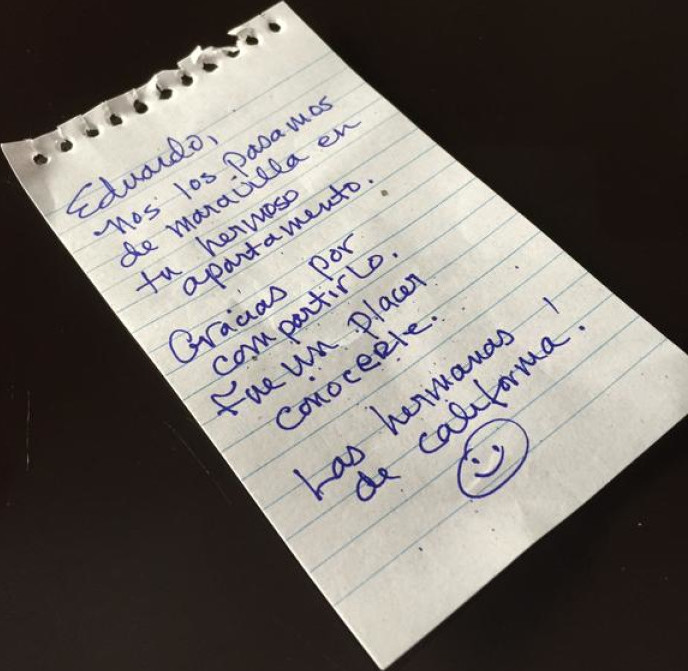 Eduardo,
nos los pasamos
de maravilla en
tu hermoso
apartamento.
Gracias por
compartirlo.
Fue un placer
conocerle.
Las hermanas
de california!